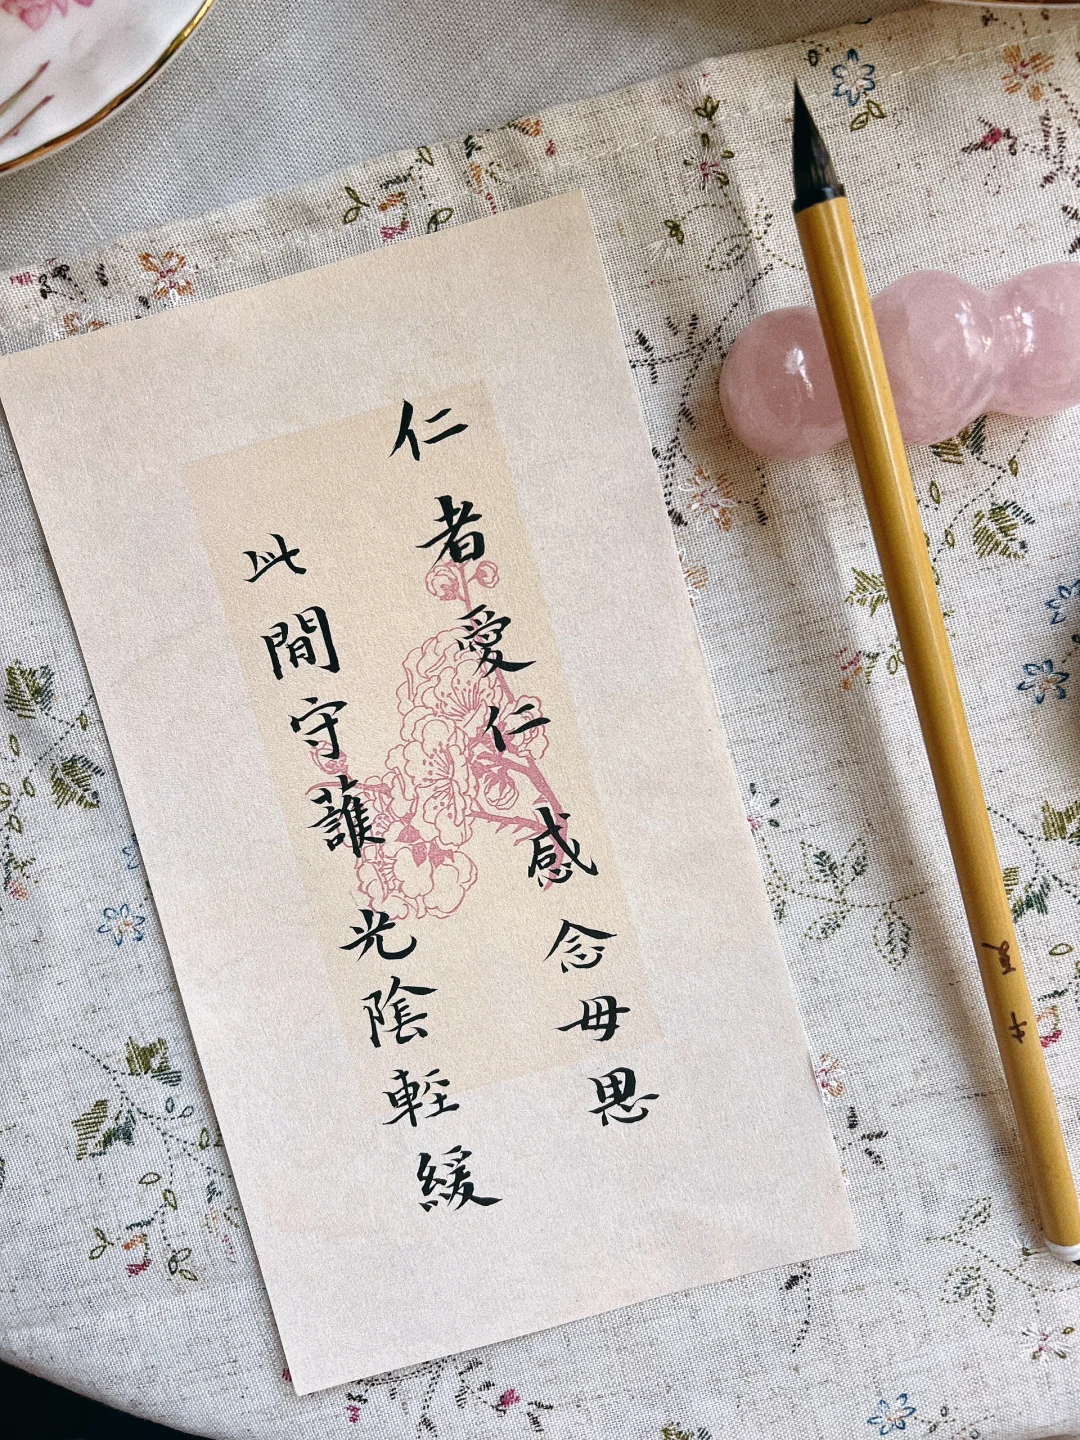 仁者愛仁感念母恩
此間守護光陰輕緩